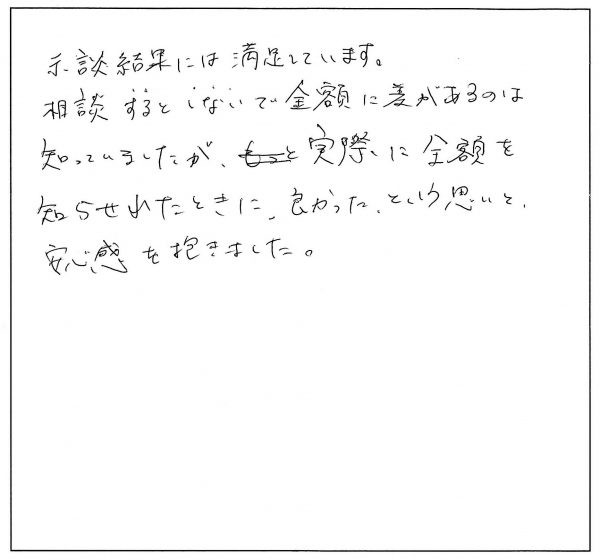 示談結果には満足しています。
相談するとしないで金額に差があるのは
知っていましたが、実際に金額を
知らせれたときに、良かった、という思いと、
安心感を抱きました。